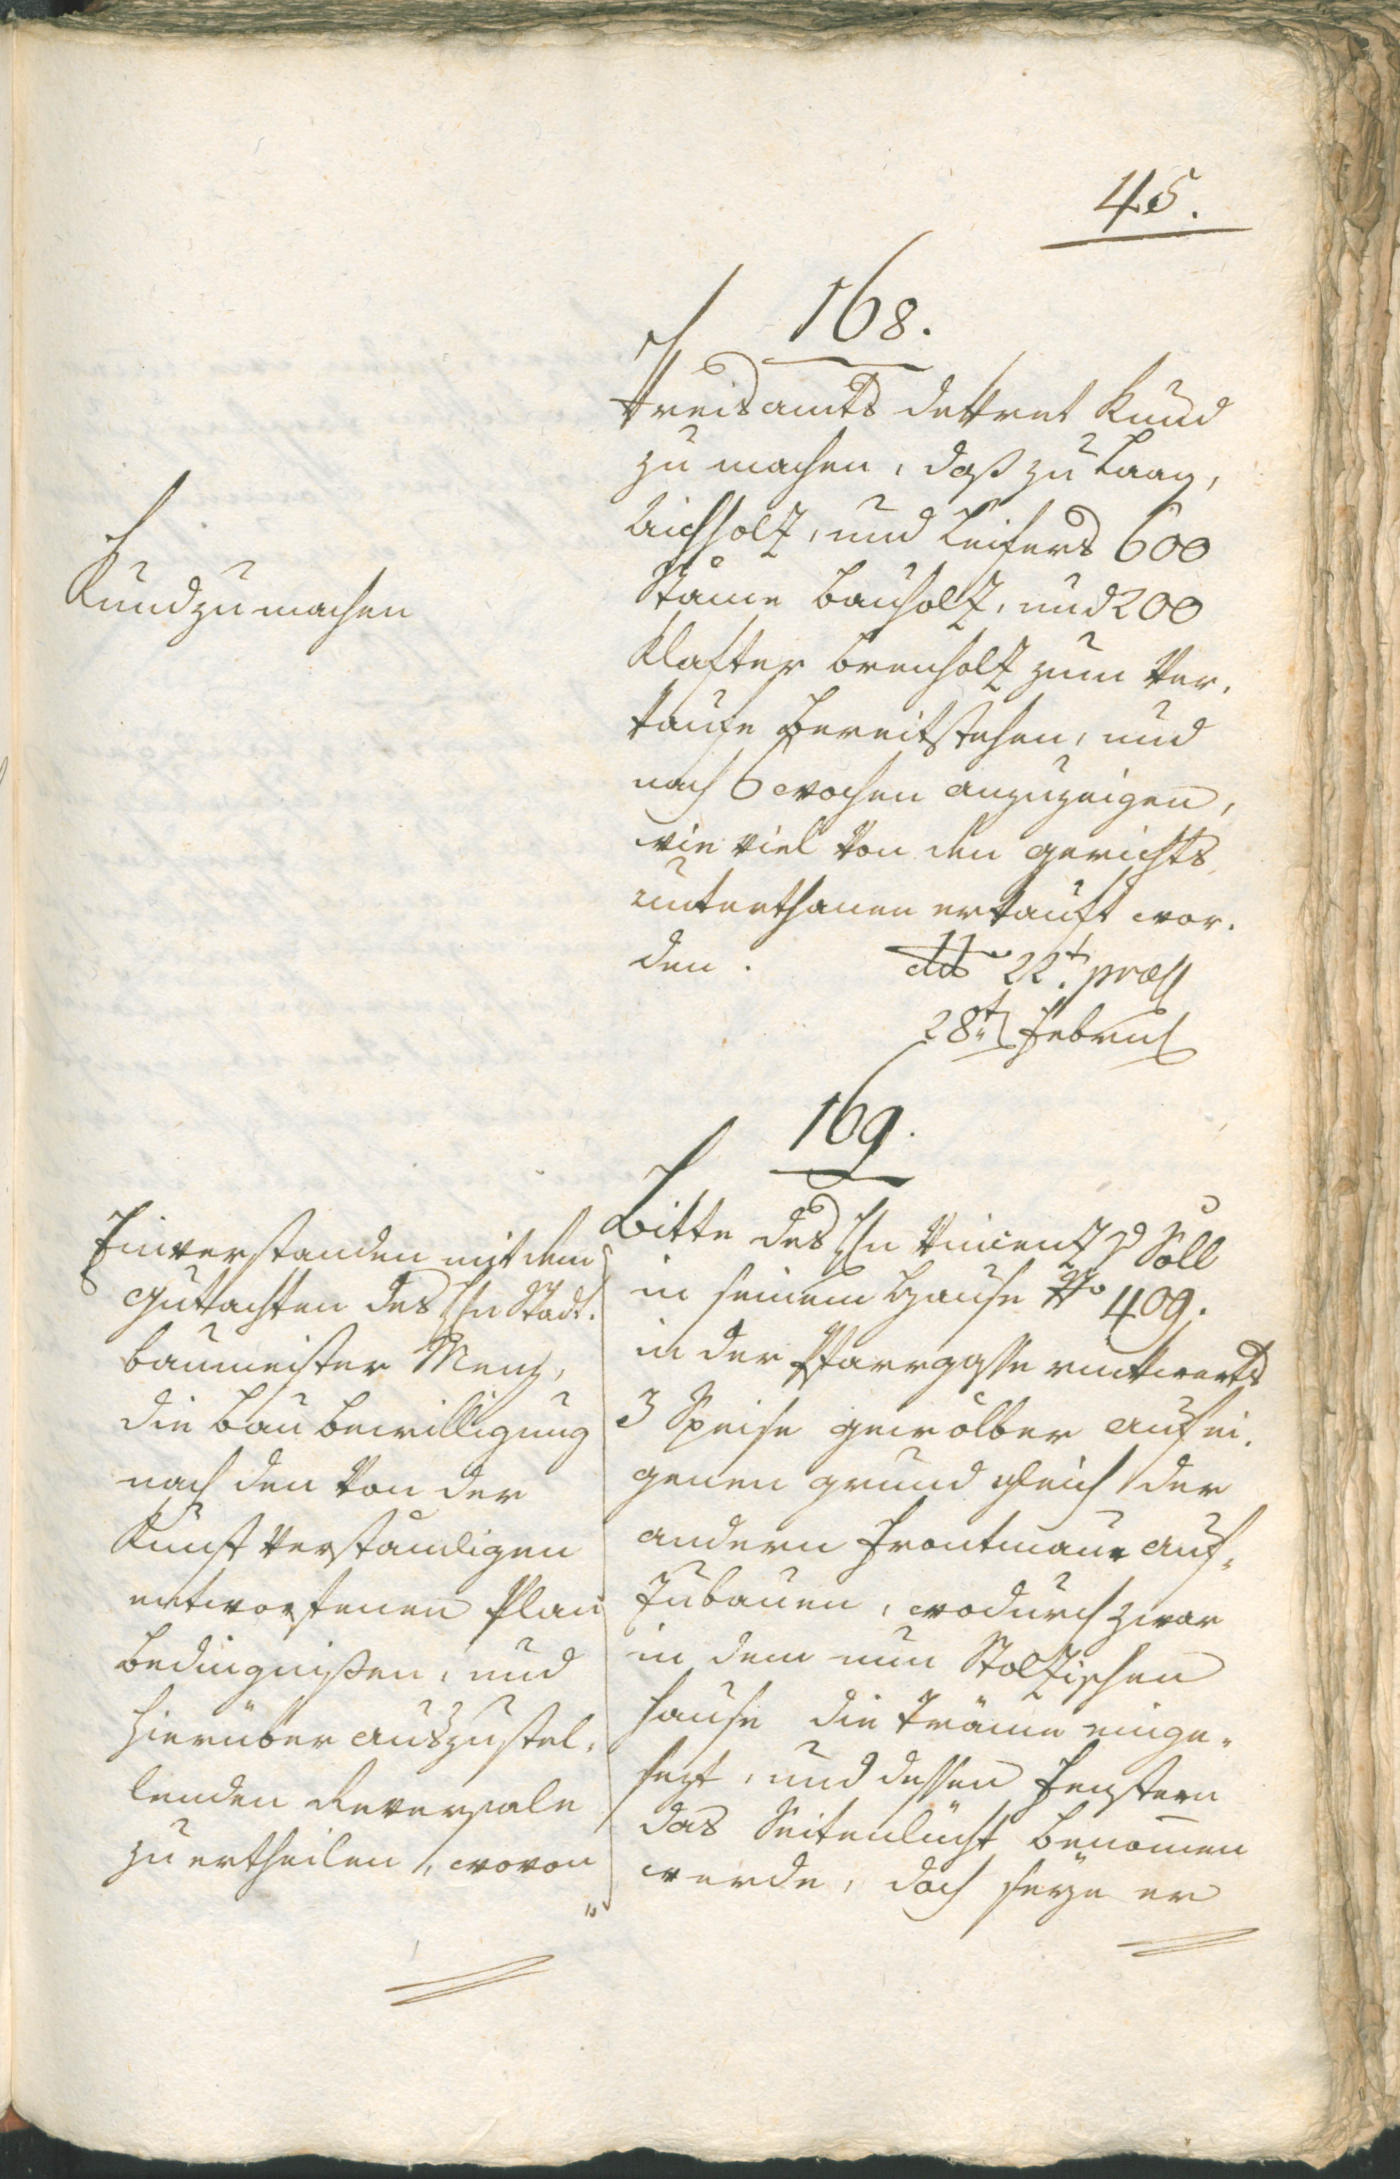 45.
168.
Kreisamts Dekret kund
zu machen, daß zu Laag,
Aichholz, und Leifers 600
Stäme Bauholz, und 200
Klafter Brenholz zum Ver-
kaufe bereitstehen, und
nach 6 wochen anzuzeigen,
wie viel von den gerichts
unterthanen erkauft wor-
den. ddo 22t. præs
28t Februs
Kund zu machen
169.
Bitte des Hn Vincenz v Söll
in seinem Hause No 409.
in der Pfarrgasse rückwerts
3 Speise gewölber auf ei-
genen grund gleich der
andern Frontmauer auf-
zubauen, wodurch zwar
in dem nun Stolzischen
hause die Träme einge-
sezt, und dessen Fenstern
das Seitenlücht benomen
werde, doch seye er
Einverstanden mit dem
gutachten des Hn Stadt-
baumeister Menz,
die Bau bewilligung
nach den von der
Kunst verständigen
entworfenen Plan
bedingnißen, und
hierüber auszustel-
lenden Reversale
zu ertheilen, wovon